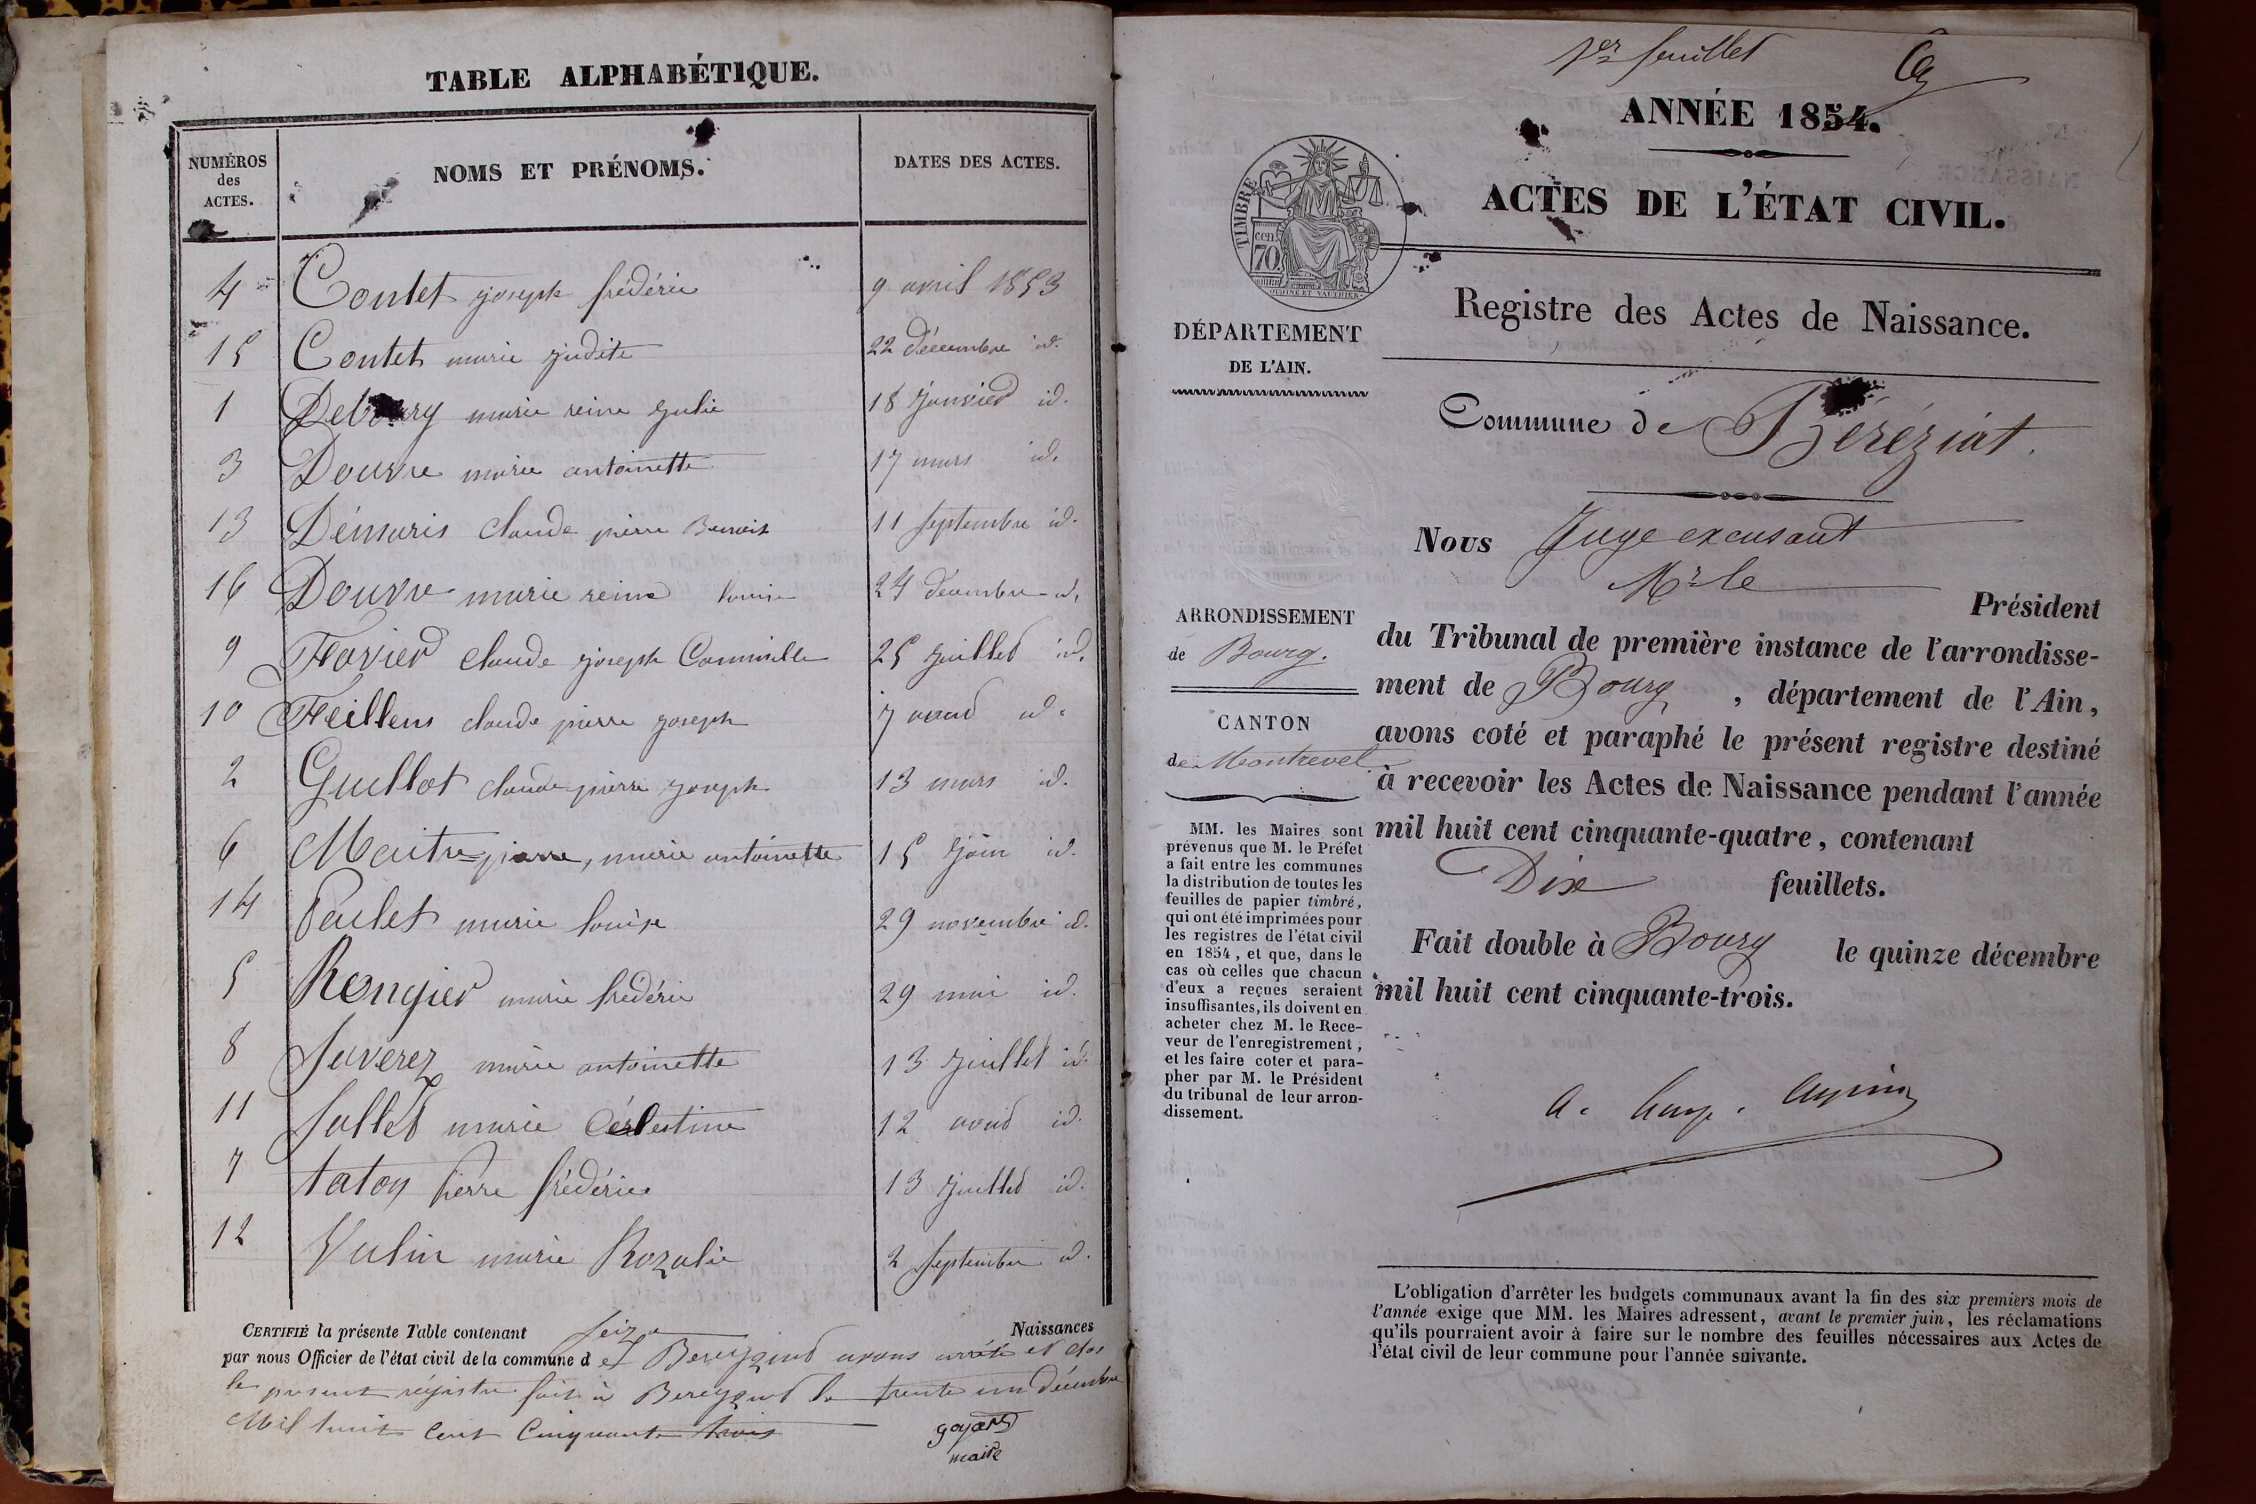 TABLE ALPHABÉTIQUE.
NUMÉROS des ACTES.
NOMS ET PRÉNOMS.
DATES DES ACTES.
4 Contet joseph frédéric 9 avril 1853
15 Contet marie judite 22 décembre id.
1 marie reine julie 18 janvier id.
3 Douvre marie antoinette 17 mars id.
13 Démaris claude pierre Benoit 11 septembre id.
16 Douvre marie reine louise 24 décembre id.
9 Favier claude joseph Cammille 25 juillet id.
10 Feillens claude pierre joseph 7 aout id.
2 Guillot claude pierre joseph 13 mars id.
6 Maitrepierre, marie antoinette 15 join id.
14 Paulet marie louise 29 novembre id.
5 Rongier marie frédéric 29 mai id.
8 Saverez marie antoinette 13 juillet id.
11 Sallet marie Célestine 12 aout id.
7 taton Pierre frédéric 13 juillet id.
12 Vulin marie Rozalie 2 septembre id.
CERTIFIÉ la présente Table contenant seize Naissances
par nous Officier de l'état civil de la commune de avons arrêté et clos
le présent régistre fait à le trente un décembre
Mil huit cent cinquante trois
goyard
maire
1er feuillet
ANNÉE 1854.
ACTES DE L'ÉTAT CIVIL.
TIMBRE
cen. 70
Registre des Actes de Naissance.
DÉPARTEMENT
DE L'AIN.
Commune de Béréziat.
Nous Juge excusant
Mr le
Président
ARRONDISSEMENT
de Bourg.
du Tribunal de première instance de l'arrondisse-
ment de Bourg, département de l'Ain,
CANTON
de Montrevel
avons coté et paraphé le présent registre destiné
à recevoir les Actes de Naissance pendant l'année
mil huit cent cinquante-quatre, contenant
Dix feuillets.
Fait double à Bourg le quinze décembre
mil huit cent cinquante-trois.
MM. les Maires sont
prévenus que M. le Préfet
a fait entre les communes
la distribution de toutes les
feuilles de papier timbré,
qui ont été imprimées pour
les registres de l'état civil
en 1854, et que, dans le
cas où celles que chacun
d'eux a reçues seraient
insuffisantes, ils doivent en
acheter chez M. le Rece-
veur de l'enregistrement,
et les faire coter et para-
pher par M. le Président
du tribunal de leur arron-
dissement.
L'obligation d'arrêter les budgets communaux avant la fin des six premiers mois de
l'année exige que MM. les Maires adressent, avant le premier juin, les réclamations
qu'ils pourraient avoir à faire sur le nombre des feuilles nécessaires aux Actes de
l'état civil de leur commune pour l'année suivante.